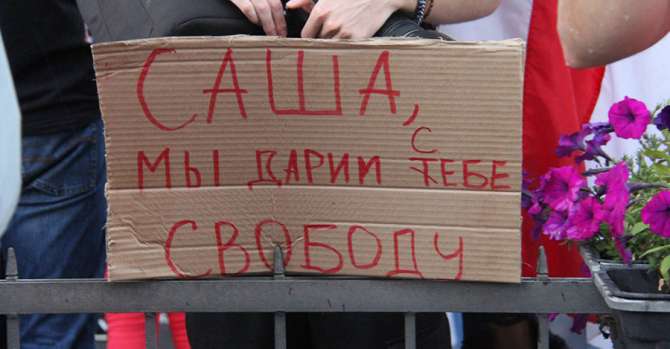 САША,
С
МЫ ДАРИМ ТЕБЕ
СВОБОДУ